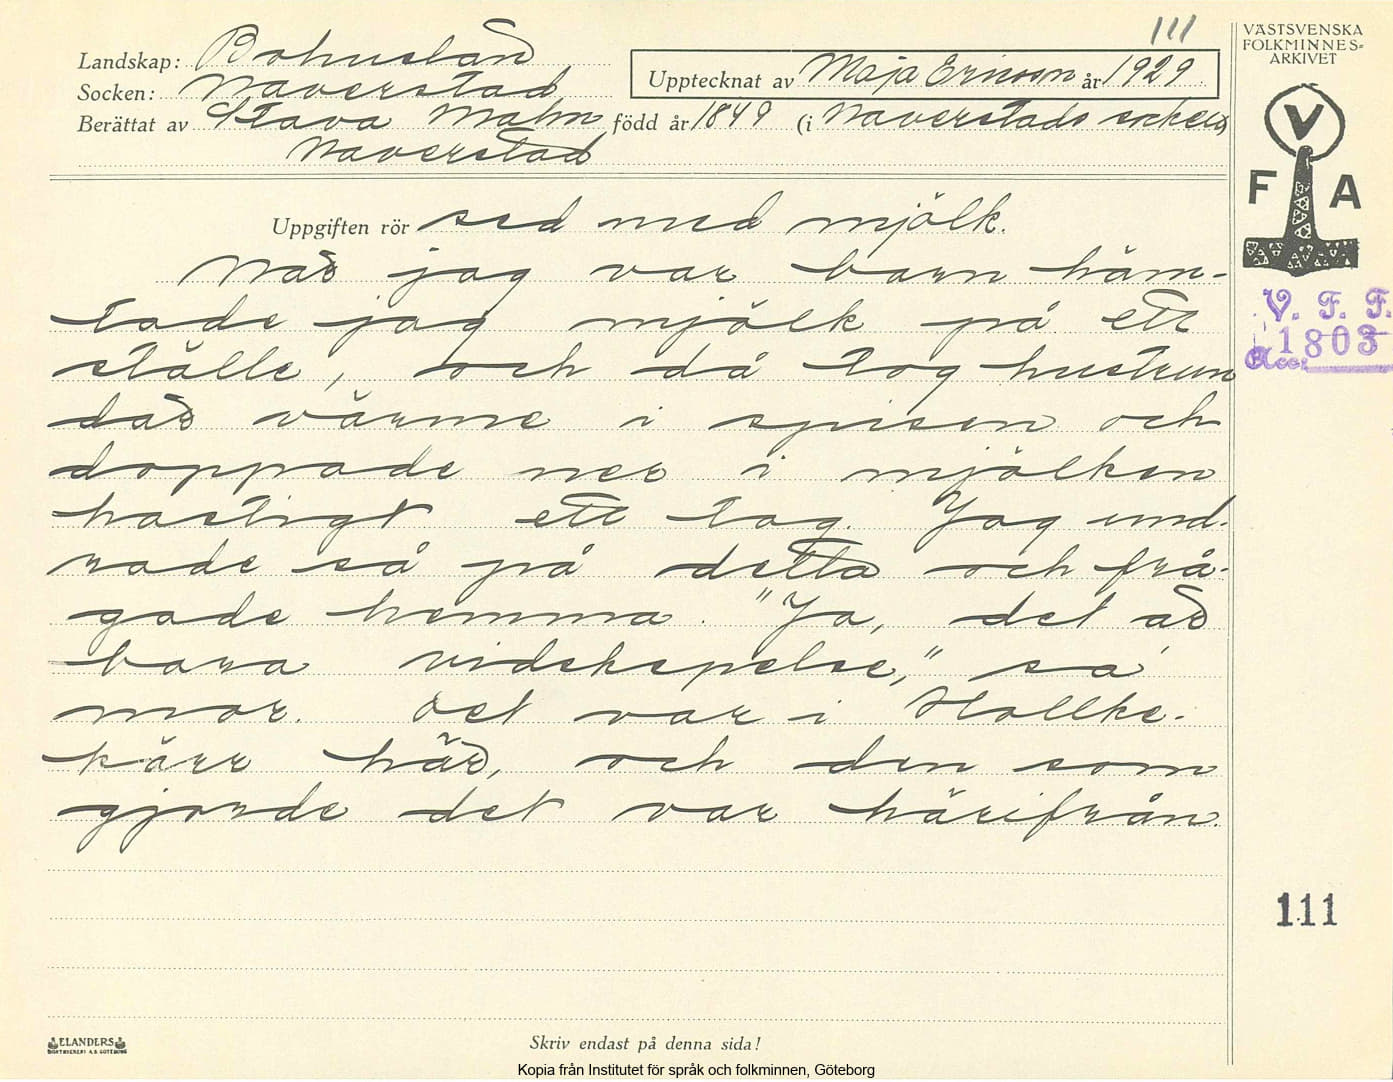 111
Landskap: Bohuslän
Socken: Naverstad
Upptecknat av Maja Ericson år 1929
Berättat av Stava Malm född år 1849 (i Naverstads socken
Naverstad
VÄSTSVENSKA
FOLKMINNES=
ARKIVET
V
F A
V. F. F.
1803
Acc:
Uppgiften rör sed med mjölk.
När jag var barn häm-
tade jag mjölk på ett
ställe, och då tog hustrun
där värme i spisen och
doppade ner i mjölken
hastigt ett tag. Jag und-
rade så på detta och frå-
gade hemma. "Ja, det är
bara vidskepelse," sa
mor. Det var i Hallke-
kärr här, och den som
gjorde det var härifrån.
111
ELANDERS
BOKTRYCKERI A.B. GÖTEBORG
Skriv endast på denna sida!
Kopia från Institutet för språk och folkminnen, Göteborg